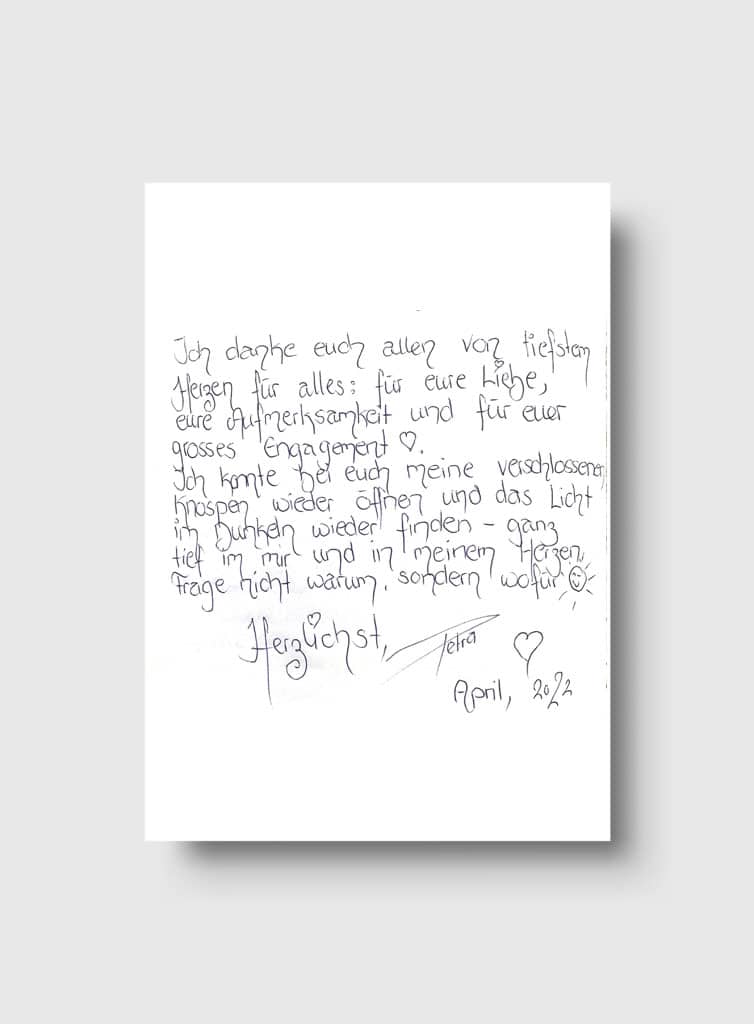 Ich danke euch allen von tiefstem
Herzen für alles: für eure Liebe,
eure Aufmerksamkeit und für euer
grosses Engagement ♡.
Ich konnte bei euch meine verschlossenen
Knospen wieder öffnen und das Licht
im Dunkeln wieder finden – ganz
tief in mir und in meinem Herzen.
Frage nicht warum, sondern wofür ☺
Herzlichst, Petra ♡
April, 2022